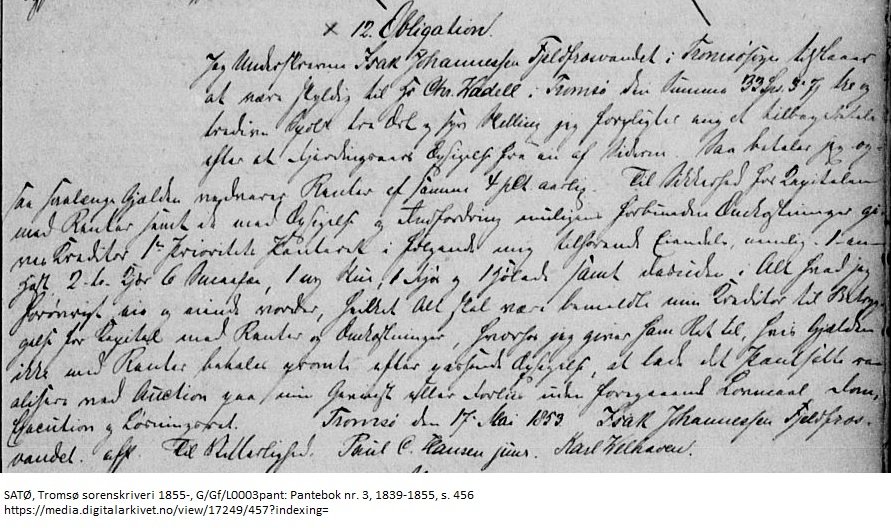 × 12. Obligation.
Jeg Underskrevne Isak Johannessen Fjeldfrosvandet i Tromsøsogn tilstaaer
at være skyldig til Hr Chr. Kadell i Tromsø den Summa 33 Spd. 3 tre og
tredive Spdlr tre Ort og syv Skilling jeg forpligter mig at tilbagebetale
efter et Fjerdingaars Opsigelse fra en af Siderne. Saa betaler jeg og-
saa saalænge Gjælden vedvarer Renter af samme 4 pCt aarlig. Til Sikkerhed for Capitalen
med Renter samt de med Opsigelse og Indfordring muligens forbundne Omkostninger gi-
ver Kreditor 1ste Prioritets Panteret i følgende mig tilhørende Eiendele, nemlig: 1 en
Hest 2 to Kjør 6 Smaafæ, 1 ny Kue, 1 og samt desuden i Alt hvad jeg
forøvrigt eier og eiende vorder, hvilket Alt skal være bemeldte min Kreditor til Betryg-
gelse for Capital med Renter og Omkostninger, hvorfor jeg giver ham Ret til, hvis Gjælden
ikke med Renter betales promte efter passende Opsigelse, at lade det Pantsatte re-
alisere ved Auction paa min Gevinst eller Forliis uden foregaaende Lovmaal, Dom,
Execution og Løsningsret. Tromsø den 17 Mai 1853 Isak Johannessen Fjeldfros-
vandet. Til Vitterlighed: Paul C. Hansen junr. Karl Welhaven.
SATØ, Tromsø sorenskriveri 1855-, G/Gf/L0003pant: Pantebok nr. 3, 1839-1855, s. 456
https://media.digitalarkivet.no/view/17249/457?indexing=